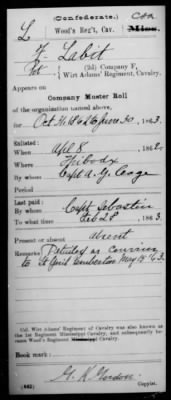 (Confederate.)
L Wood's Reg't, Cav. CSA Miss.
F Labit
Pvt (2d) Company F,
Wirt Adams' Regiment, Cavalry.
Appears on
Company Muster Roll
of the organization named above,
for Oct 31 1862 to June 30, 1863.
Enlisted:
When Apl 8, 1862.
Where Thibodx
By whom Capt A. G. Cage
Period
Last paid:
By whom Capt Sebastin
To what time Feb 28, 1863
Present or absent absent
Remarks: Detailed as courier
to Lt Genl Pemberton May 63
Col. Wirt Adams' Regiment of Cavalry was also known as
the 1st Regiment Mississippi Cavalry, and subsequently became
Wood's Regiment Mississippi Cavalry.
Book mark:
(642) Copyist.